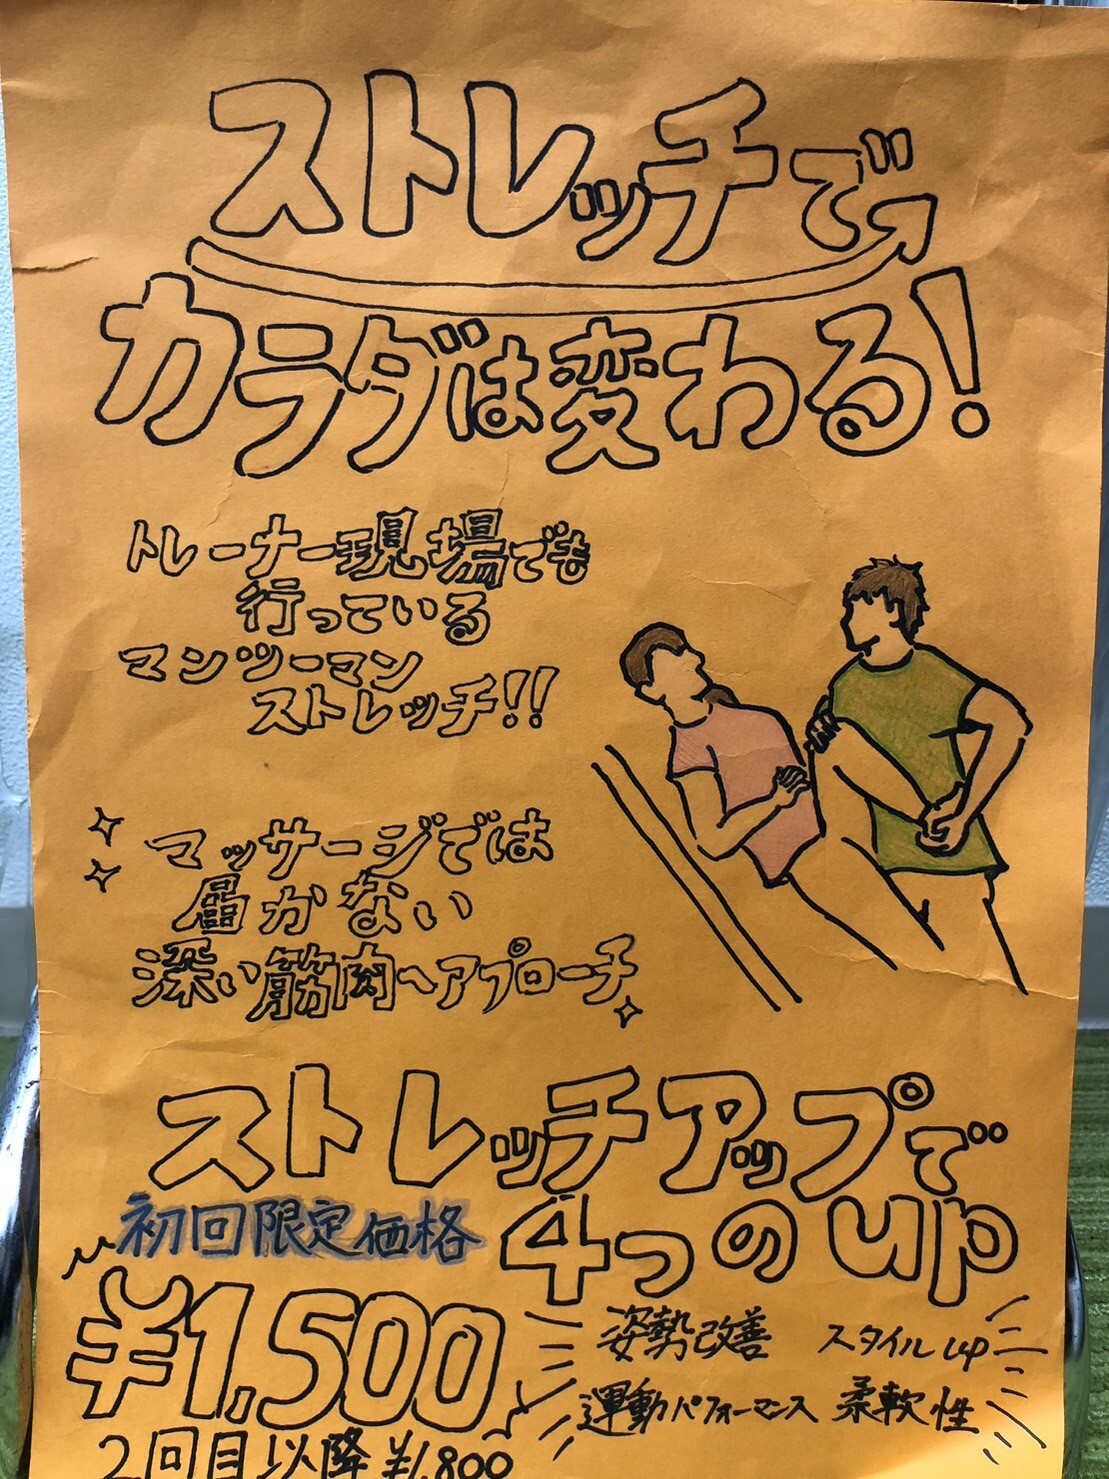 ストレッチで
カラダは変わる!
トレーナー現場でも
行っている
マンツーマン
ストレッチ!!
マッサージでは
届かない
深い筋肉へアプローチ
ストレッチアップで
4つのup
初回限定価格
¥1,500
2回目以降¥1,800
姿勢改善 スタイルup
運動パフォーマンス 柔軟性